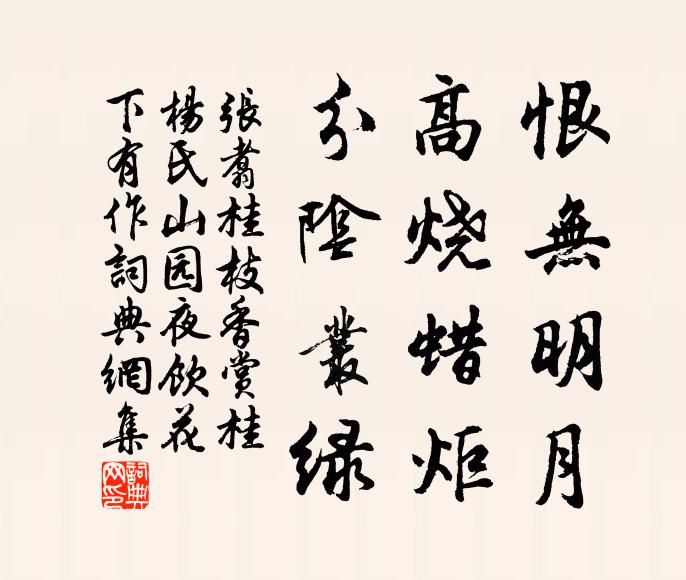 恨無明月
高烧蜡炬
分陰叢緑
張翥桂枝香賞桂
楊氏山园夜飲花
下有作詞典網集
詞典网印